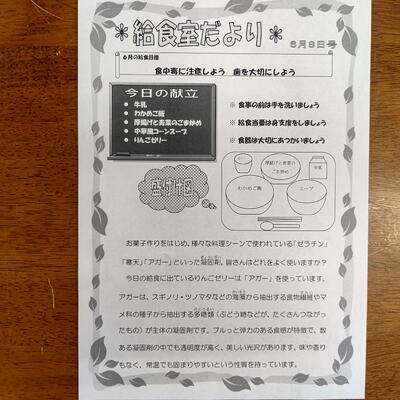 ＊給食室だより＊
6月8日号
6月の給食目標
食中毒に注意しよう　歯を大切にしよう
今日の献立
● 牛乳
● わかめご飯
● 厚揚げと青菜のごま炒め
● 中華風コーンスープ
● りんごゼリー
※ 食事の前は手を洗いましょう
※ 給食当番は身支度をしましょう
※ 食器は大切にあつかいましょう
盛付図
ゼリー
厚揚げと青菜の
ごま炒め
牛乳
わかめご飯
スープ
お菓子作りをはじめ、様々な料理シーンで使われている「ゼラチン」
「寒天」「アガー」といった凝固剤。皆さんはどれをよく使いますか？
今日の給食に出ているりんごゼリーは「アガー」を使っています。
アガーは、スギノリ・ツノマタなどの海藻から抽出する食物繊維やマ
メ科の種子から抽出する多糖類（ぶどう糖などが、たくさんつながっ
たもの）が主体の凝固剤です。プルッと弾力のある食感が特徴で、数
ある凝固剤の中でも透明度が高く、美しい光沢があります。味や香り
もなく、常温でも固まりやすいという性質を持っています。